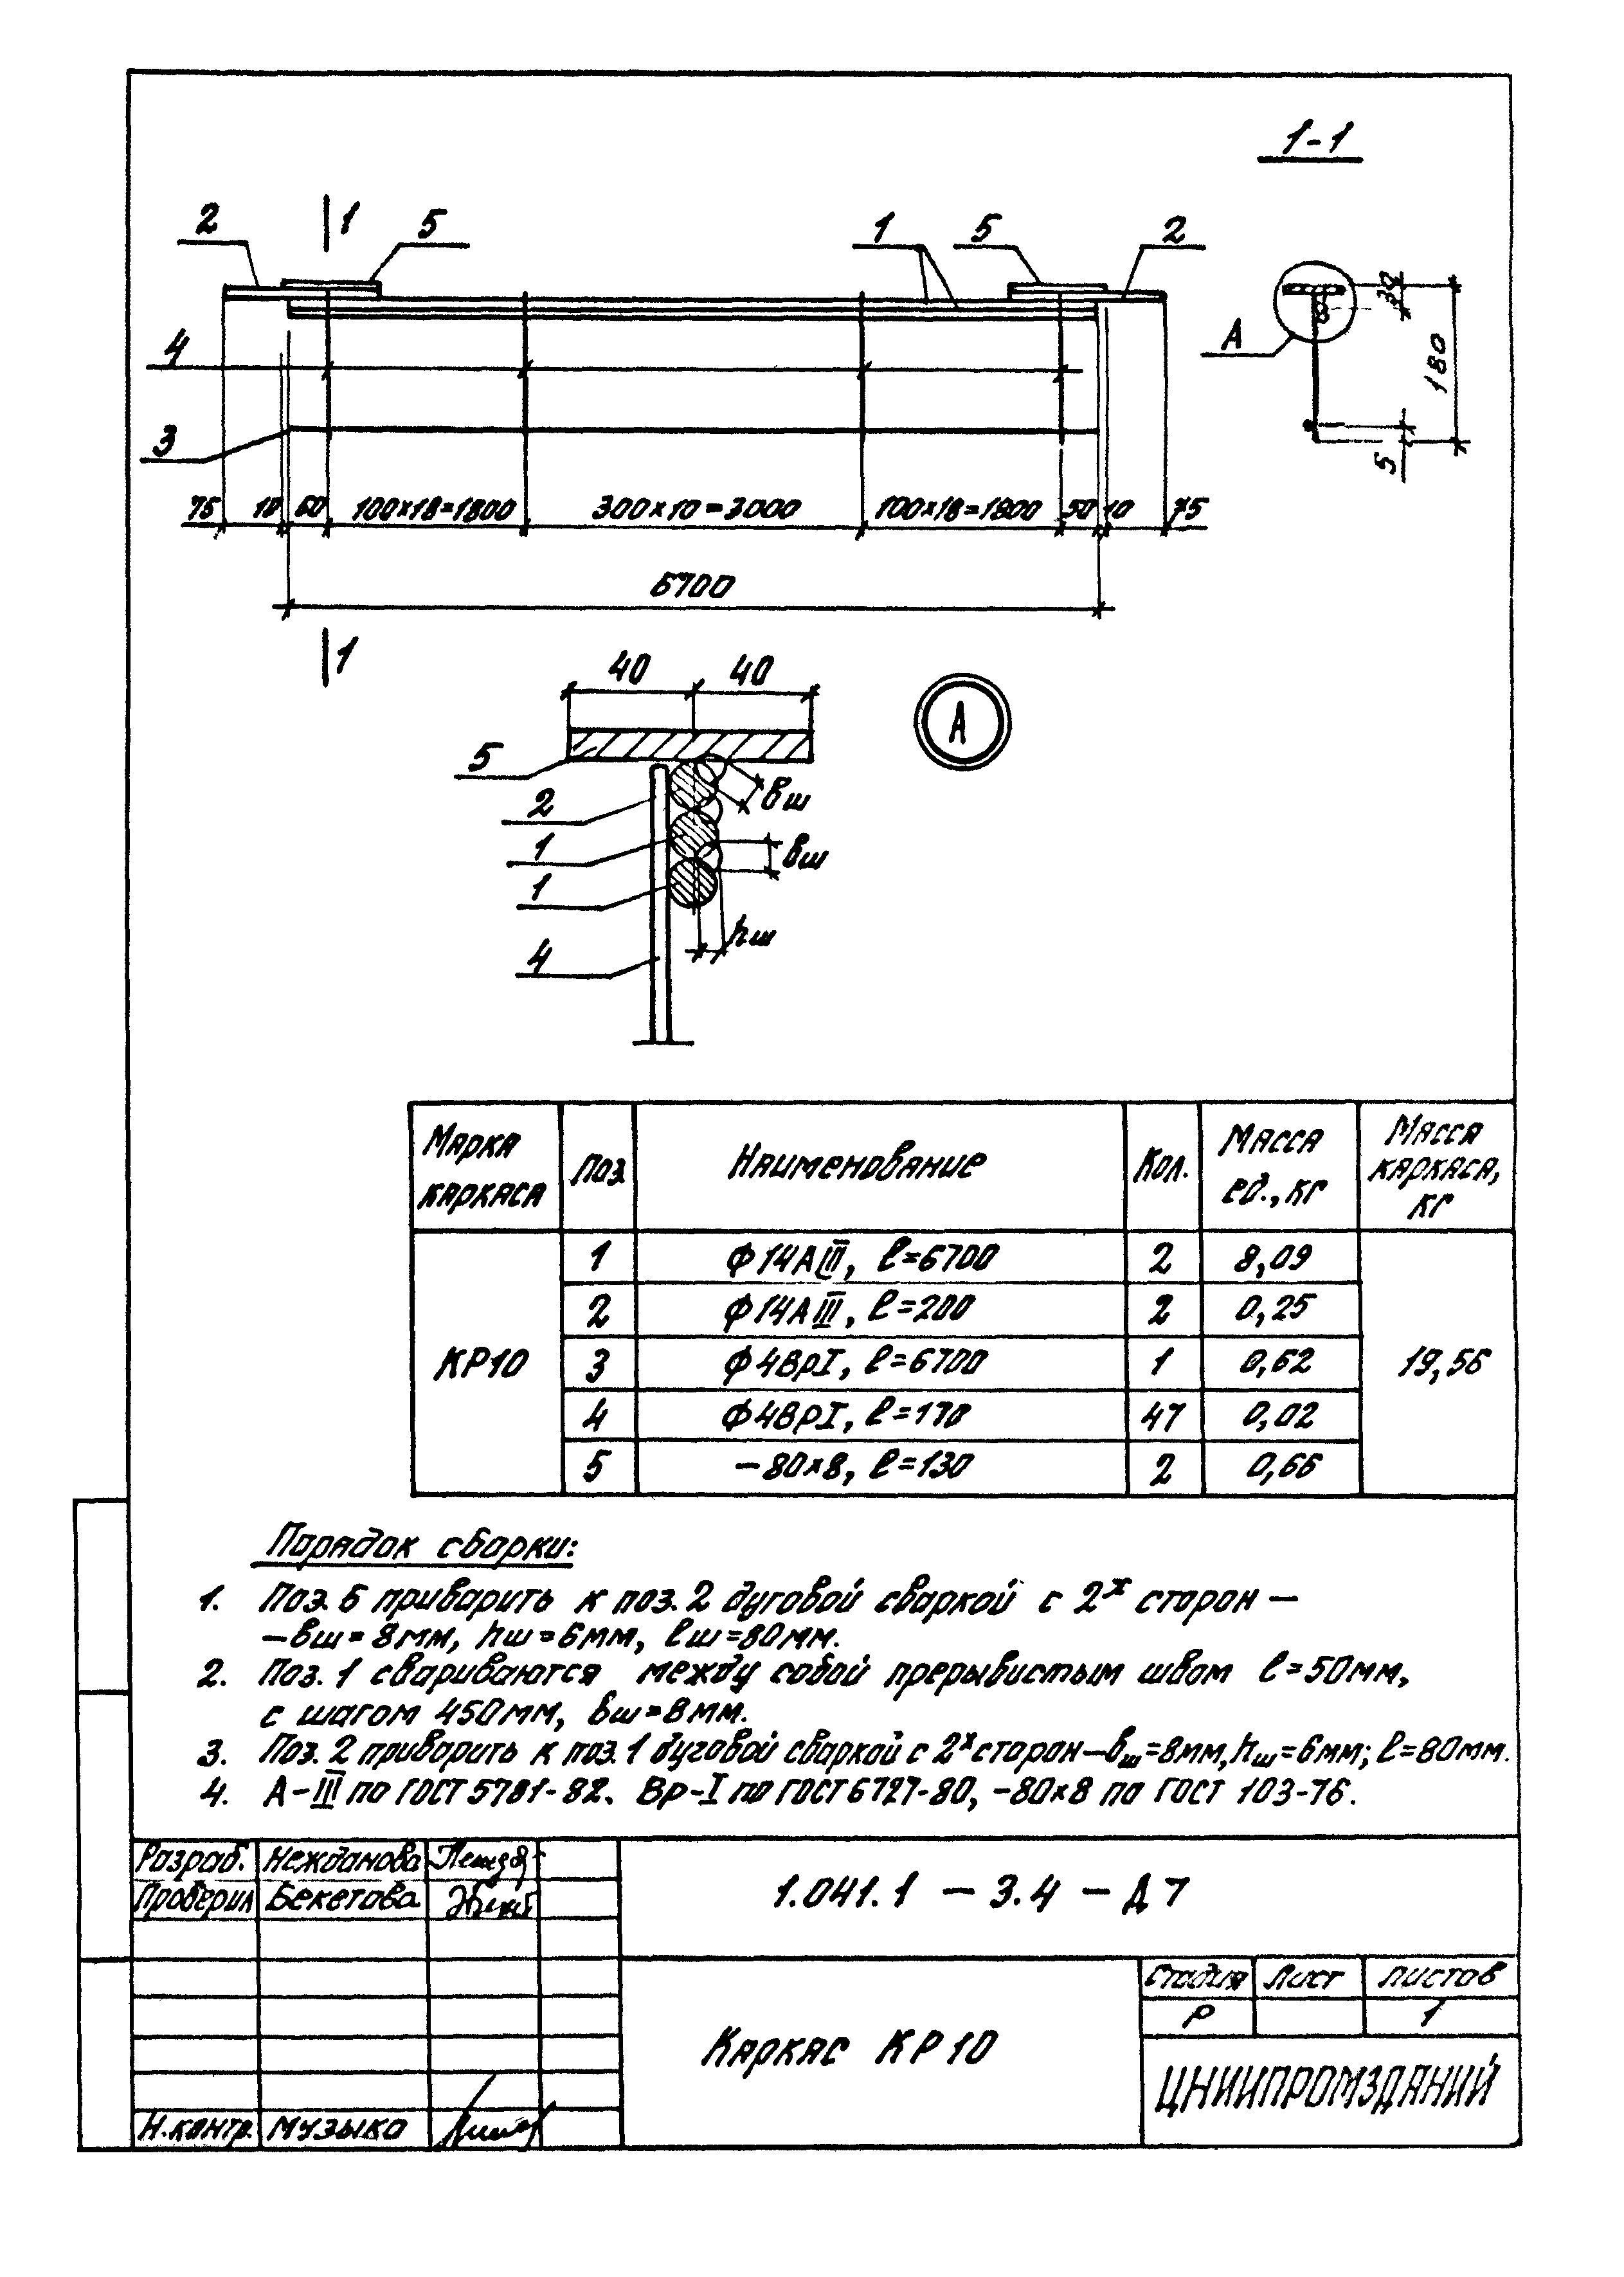 1-1
2
1
5
1
5
2
А
38
180
5
4
3
75
10
50
100×18=1800
300×10=3000
100×18=1800
50
10
75
6700
1
40
40
А
5
2
1
1
4
вш
вш
hш
Марка каркаса
Поз.
Наименование
Кол.
Масса ед., кг
Масса каркаса, кг
КР10
1
ϕ14АIII, ℓ=6700
2
8,09
19,56
2
ϕ14АIII, ℓ=200
2
0,25
3
ϕ4ВрI, ℓ=6700
1
0,62
4
ϕ4ВРI, ℓ=170
47
0,02
5
–80×8, ℓ=130
2
0,66
Порядок сборки:
1. Поз. 5 приварить к поз. 2 дуговой сваркой с 2х сторон –
– вш = 8мм, hш = 6мм, ℓш =80мм.
2. Поз. 1 свариваются между собой прерывистым швом ℓ=50мм,
с шагом 450мм, вш=8мм.
3. Поз. 2 приварить к поз. 1 дуговой сваркой с 2х сторон – вш=8мм, hш=6мм; ℓ=80мм.
4. А-III по ГОСТ 5781-82. Вр-I по ГОСТ 6727-80, –80×8 по ГОСТ 103-76.
Разраб. Нежданова
Проверил Бекетова
Н.контр. Музыко
1.041.1 – 3.4 – Д7
Каркас КР10
Стадия
Лист
Листов
Р
1
ЦНИИПРОМЗДАНИЙ